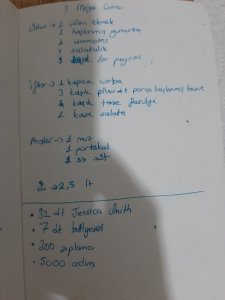 2 Mayıs Cuma
Sahur → 2 dilim ekmek
1 haşlanmış yumurta
1 domates
1 salatalık
1 lor peyniri
iftar → 1 kepçe çorba
3 kaşık pilav + 1 parça haşlanmış tavuk
4 kaşık taze fasulye
1 kase salata
Aralar → 1 muz
1 portakal
1 sb süt
→ 2,5 lt
• 32 dk Jessica Smith
• 7 dk bölgesel
• 300 zıplama
• 5000 adım